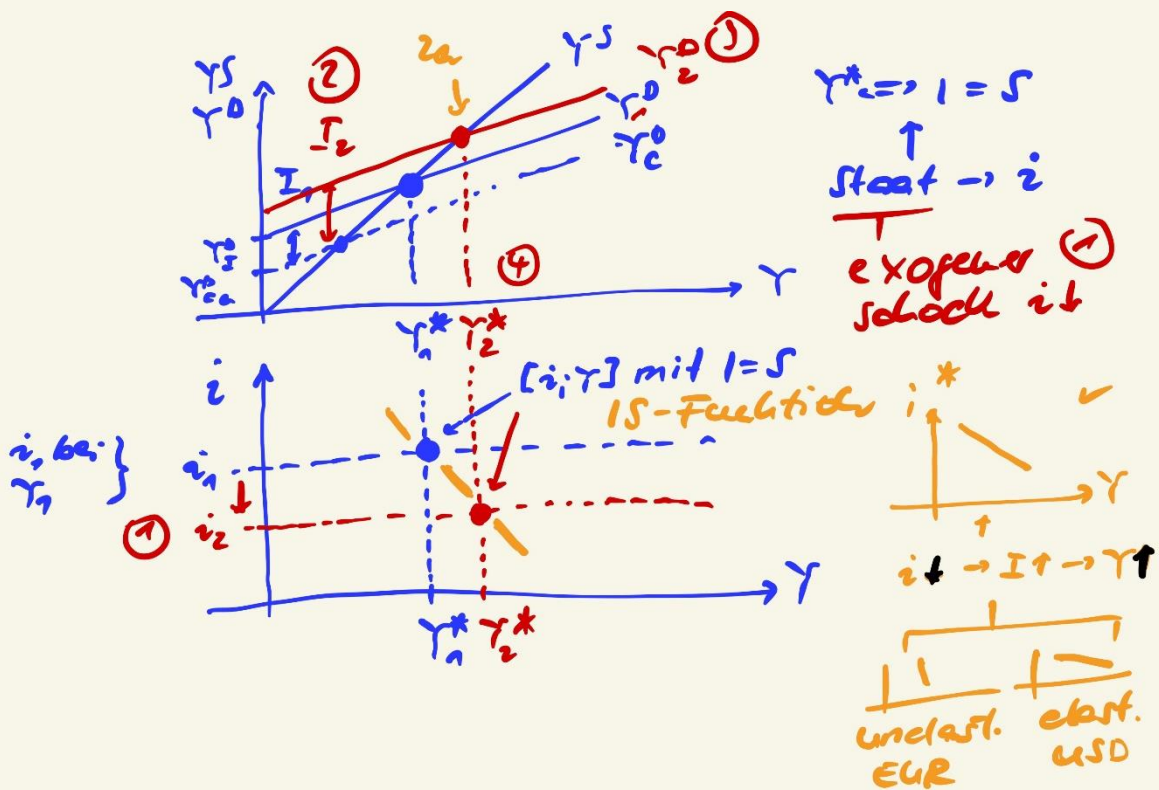 YS
Y^D
②
I₂
I₁
2a
Y^S
Y₂^D ③
Y₁^D
Y_C^D
Y_I^D
Y_Ca^D
④
Y
Y₁* Y₂*
Y* => I = S
↑
Staat → i
exogener ①
schock i↓
i
[i;Y] mit I=S
IS-Funktion
i₁ bei }
Y₁
i₁
① i₂
Y
Y₁* Y₂*
i* ✓
Y
↑
i↓ → I↑ → Y↑
unelast.
EUR
elast.
USD